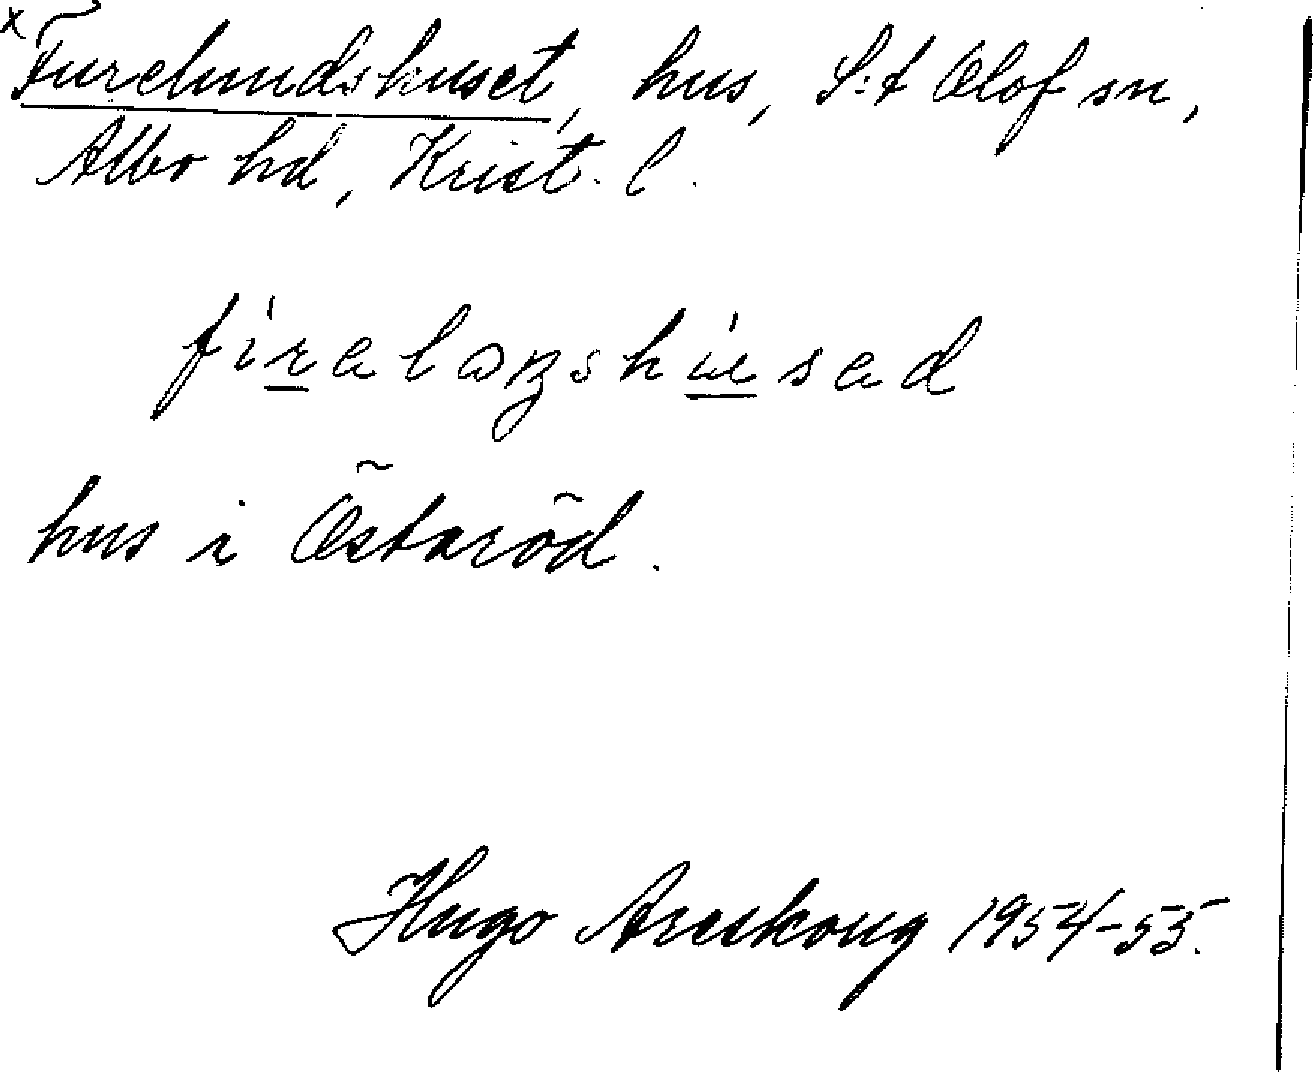 x Furelundshuset, hus, S:t Olof sn,
Albo hd, Krist. l.
hus i Östaröd.
Hugo Areskoug 1954-55.